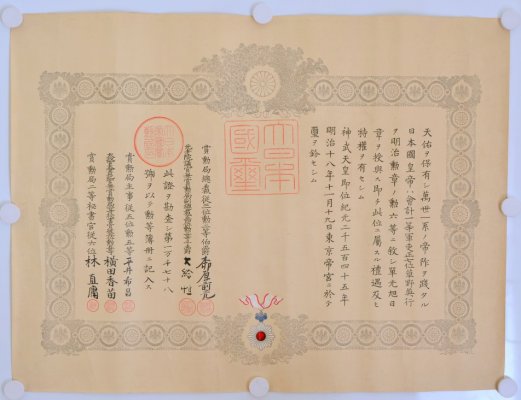 天佑ヲ保有シ萬世一系ノ帝阼ヲ踐タル
日本國皇帝ハ會計一等軍吏正七位草野與行
ヲ明治勲章ノ勲六等ニ敍シ單光旭日
章ヲ授與ス即チ此位ニ属スル禮遇及ヒ
特權ヲ有セシム
神武天皇即位紀元二千五百四十五年
明治十八年十一月十九日東京帝宮ニ於テ
璽ヲ鈐セシム
大日本國璽
賞勲局總裁從二位勲一等伯爵
此證ヲ勘査シ第一万千七十八
號ヲ以テ勲等簿冊ニ記入ス
賞勲局主事從五位勲五等平井希昌
横田香苗
賞勲局二等秘書官從六位林直庸